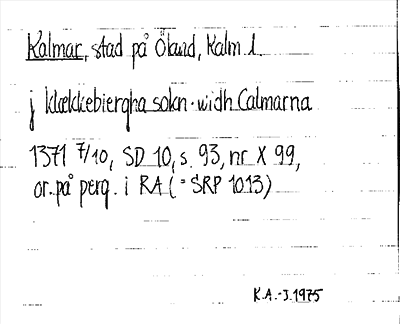 Kalmar, stad på Öland, Kalm. l.
j klækkebiergha sokn · widh Calmarna
1371 7/10, SD 10, s. 93, nr X 99,
or. på perg. i RA (= SRP 1013)
K.A.-J. 1975